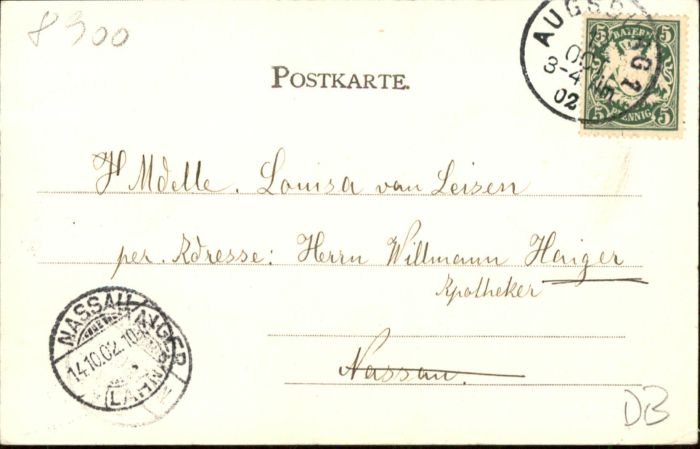 8300
POSTKARTE.
AUGSB G 1
OCT
3-4 N
02
5 BAYERN 5
5 PFENNIG 5
Mdelle. Louisa van Leisen
per. Adresse: Herrn Willmann Haiger
Apotheker
Nassau.
NASSAU
14.10.02.10
(LAHN)
DB